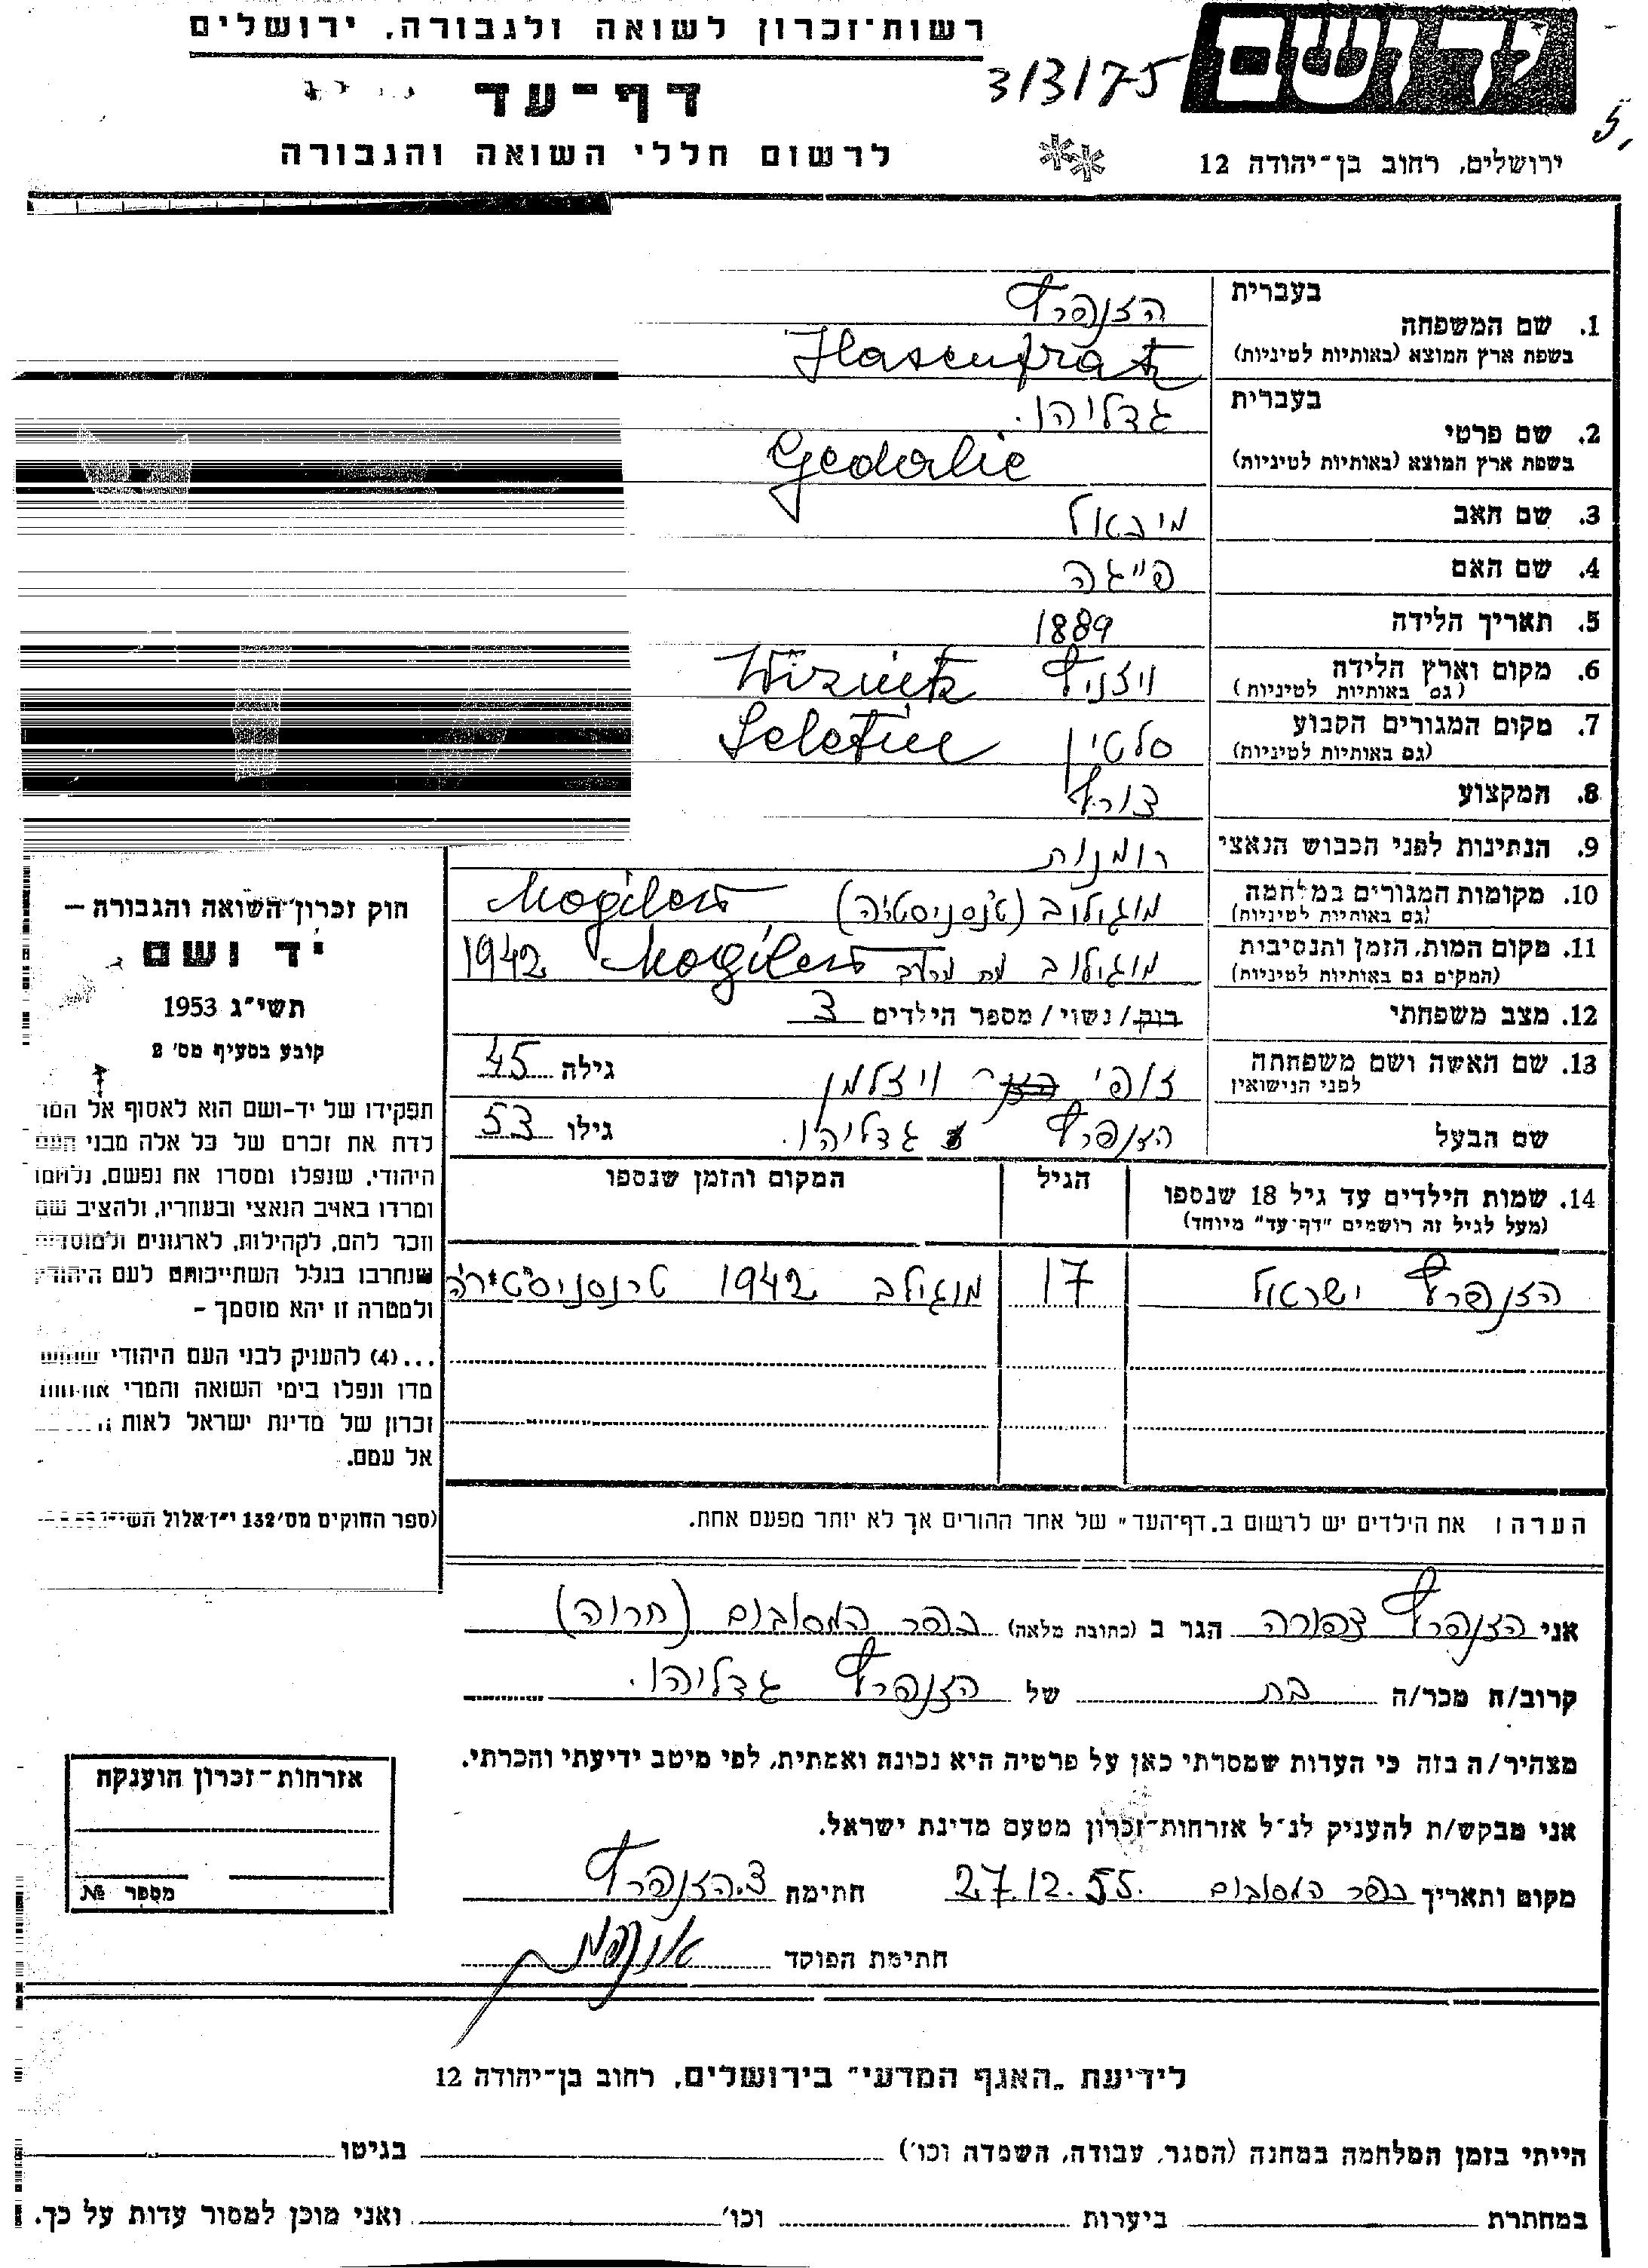 רשות־זכרון לשואה ולגבורה, ירושלים
יד ושם
3/3/75
דף־עד
5,
לרשום חללי השואה והגבורה
ירושלים, רחוב בן־יהודה 12
1. שם המשפחה
בעברית הזנפרץ
בשפת ארץ המוצא (באותיות לטיניות) Hasenfratz
2. שם פרטי
בעברית גדליהו.
בשפת ארץ המוצא (באותיות לטיניות) Gedalie
3. שם האב מיכאל
4. שם האם פייגה
5. תאריך הלידה 1889
6. מקום וארץ הלידה ויזניץ Wiznitz
(גם באותיות לטיניות)
7. מקום המגורים הקבוע סלטין Seletin
(גם באותיות לטיניות)
8. המקצוע צורף
9. הנתינות לפני הכבוש הנאצי רומנות
10. מקומות המגורים במלחמה מוגילוב Mogilew
(גם באותיות לטיניות)
11. מקום המות, הזמן והנסיבות מוגילוב מת מרעב Mogilew 1942
(המקים גם באותיות לטיניות)
12. מצב משפחתי רוק/נשוי/מספר הילדים 3
13. שם האשה ושם משפחתה זופי ויזלמן גילה 45
לפני הנישואין
שם הבעל הזנפרץ גדליהו. גילו 53
14. שמות הילדים עד גיל 18 שנספו הגיל המקום והזמן שנספו
(מעל לגיל זה רושמים "דף־עד" מיוחד)
הזנפרץ ישראל 17 מוגילב 1942 טרנסניסטריה
הערה: את הילדים יש לרשום ב„דף־העד" של אחד ההורים אך לא יותר מפעם אחת.
חוק זכרון השואה והגבורה —
יד ושם
תשי"ג 1953
קובע בסעיף מס' 2
תפקידו של יד-ושם הוא לאסוף אל המו
לדת את זכרם של כל אלה מבני העם
היהודי, שנפלו ומסרו את נפשם, נלחמו
ומרדו באויב הנאצי ובעוזריו, ולהציב שם
וזכר להם, לקהילות, לארגונים ולמוסדות
שנחרבו בגלל השתייכותם לעם היהודי
ולמטרה זו יהא מוסמך –
...(4) להעניק לבני העם היהודי שהוש
מדו ונפלו בימי השואה והמרי אזרחות
זכרון של מדינת ישראל לאות
אל עמם.
(ספר החוקים מס' 132 י"ז אלול תשי"ג
אני הזנפרץ צפורה הגר ב (כתובת מלאה) כפר
קרוב/ה מכר/ה בת של הזנפרץ גדליהו.
מצהיר/ה בזה כי העדות שמסרתי כאן על פרטיה היא נכונה ואמתית, לפי מיטב ידיעתי והכרתי.
אני מבקש/ת להעניק לנ"ל אזרחות־זכרון מטעם מדינת ישראל.
מקום ותאריך כפר 27.12.55. חתימה צ.הזנפרץ
חתימת הפוקד
אזרחות־זכרון הוענקה
מספר №
לידיעת „האגף המדעי" בירושלים, רחוב בן־יהודה 12
הייתי בזמן המלחמה במחנה (הסגר, עבודה, השמדה וכו') בגיטו
במחתרת ביערות וכו' ואני מוכן למסור עדות על כך.